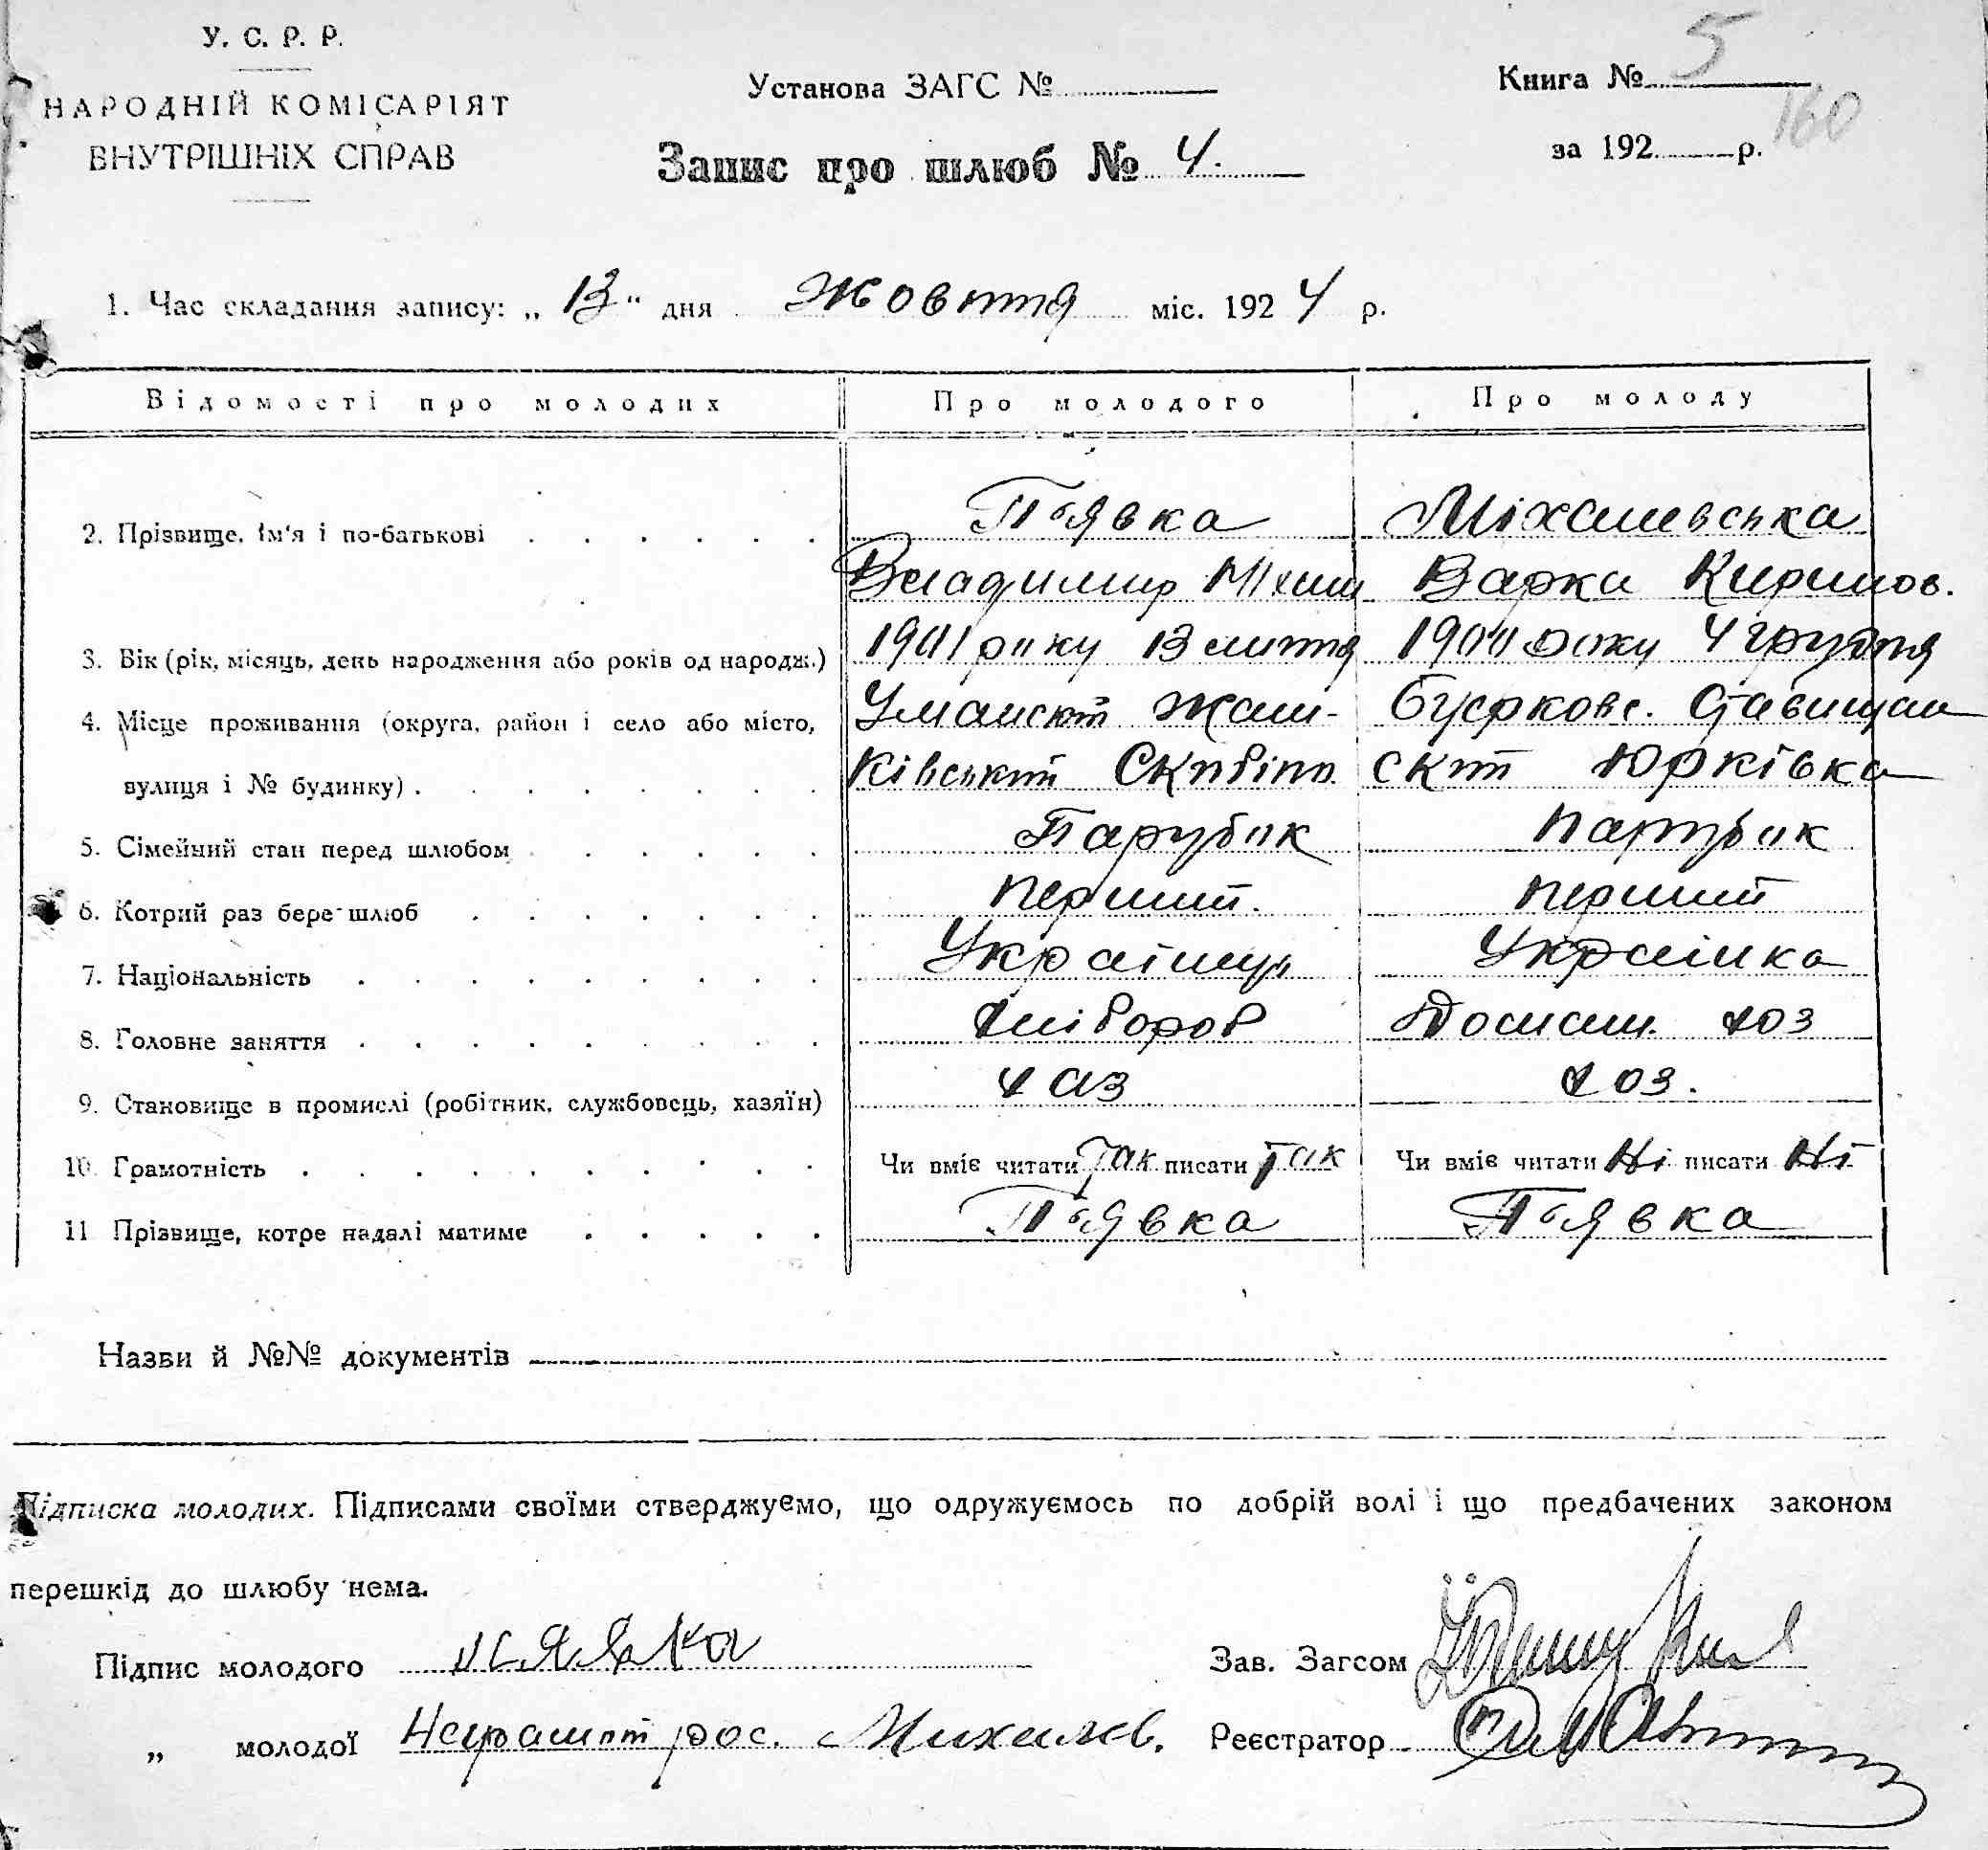 У. С. Р. Р.
НАРОДНІЙ КОМІСАРІЯТ
ВНУТРІШНІХ СПРАВ
Установа ЗАГС №
Книга № 5
160
за 192 р.
Запис про шлюб № 4.
1. Час складання запису: „ 13 " дня Жовтня міс. 192 4 р.
Відомості про молодих Про молодого Про молоду
2. Прізвище, ім'я і по-батькові П‘явка Міхалевська
Владимир Міхай Варка Кирилов.
3. Вік (рік, місяць, день народження або років од народж.) 1901 року 13 липня 1904 року 4 грудня
4. Місце проживання (округа, район і село або місто, Уманскит Жаш- Буцрковс. Ставищан
вулиця і № будинку) ківський Скибин. скит Юрківка
5. Сімейний стан перед шлюбом Парубок парубок
6. Котрий раз бере шлюб перший. перший
7. Національність Українець Українка
8. Головне заняття хлібороб Домаш. хоз
9. Становище в промислі (робітник, службовець, хазяїн) хаз хоз.
10. Грамотність Чи вміє читати Так писати Так Чи вміє читати Ні писати Ні
11 Прізвище, котре надалі матиме П‘явка П‘явка
Назви й №№ документів
Підписка молодих. Підписами своїми стверджуємо, що одружуємось по добрій волі і що предбачених законом
перешкід до шлюбу нема.
Підпис молодого Пявка Зав. Загсом
„ молодої Неграмот рос. Михалев. Реєстратор